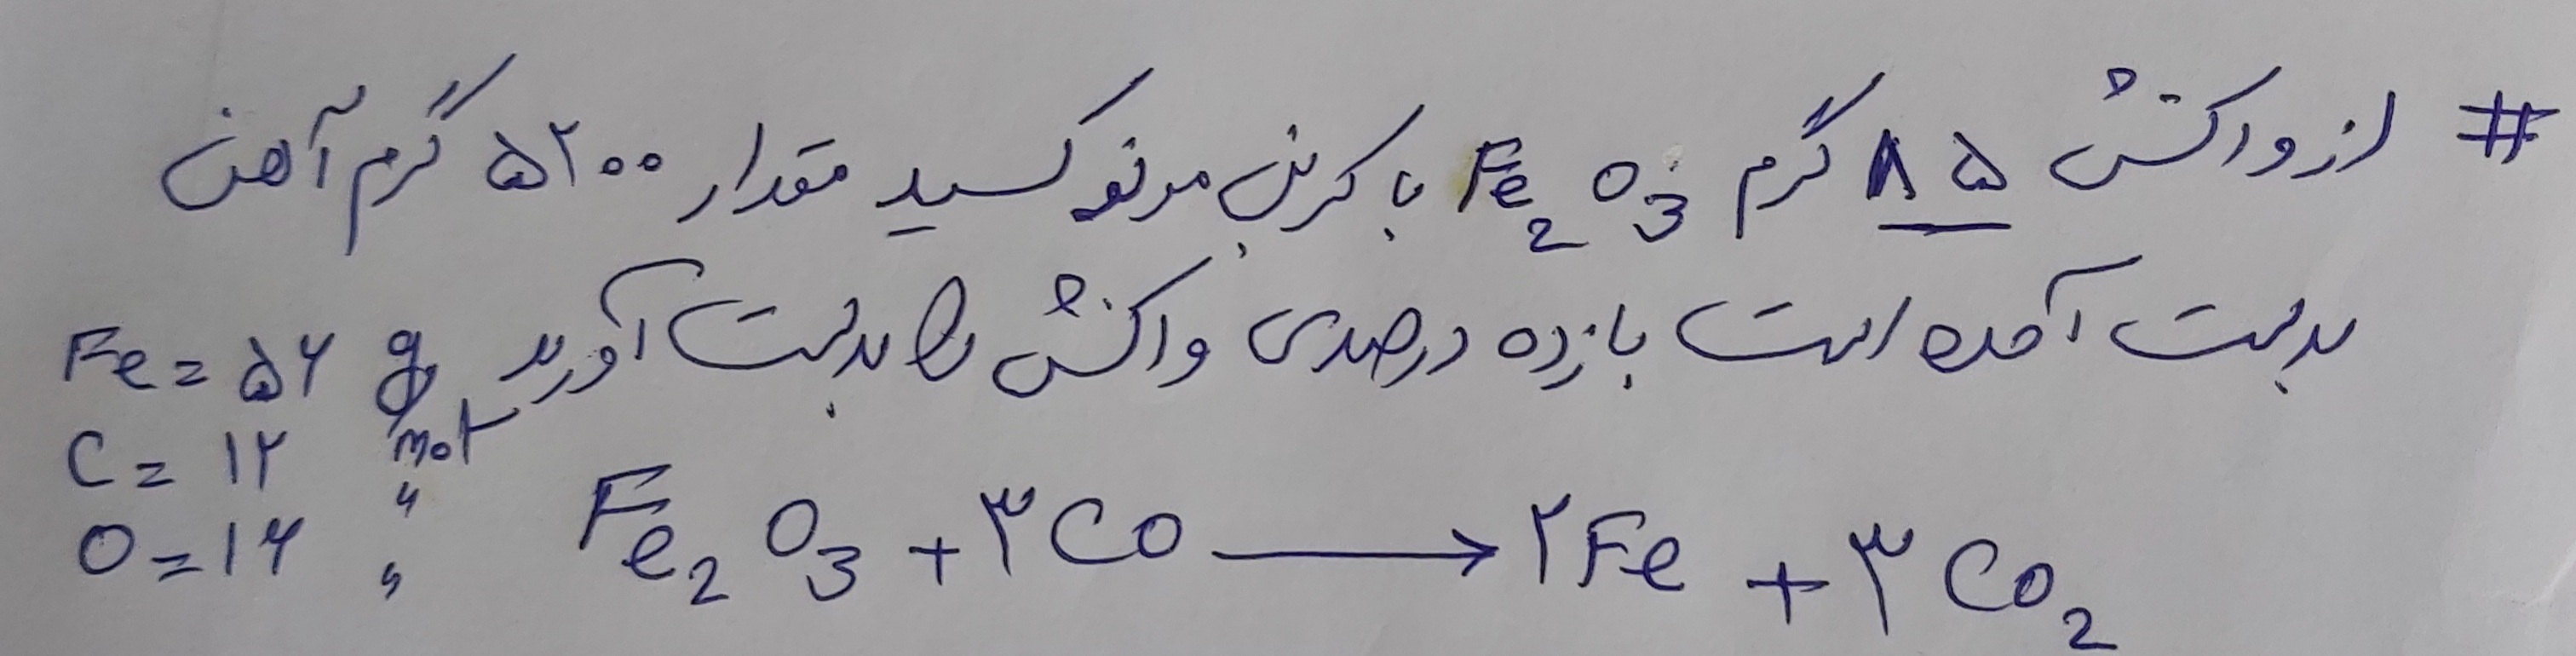 # از واکنش ۸۵ گرم Fe₂O₃ با کربن مونوکسید مقدار ۵۲۰۰ گرم آهن
بدست آمده است بازده درصدی واکنش را بدست آورید
Fe = ۵۶ g/mol
C = ۱۲ "
O = ۱۶ "
Fe₂O₃ + ۳CO → ۲Fe + ۳CO₂